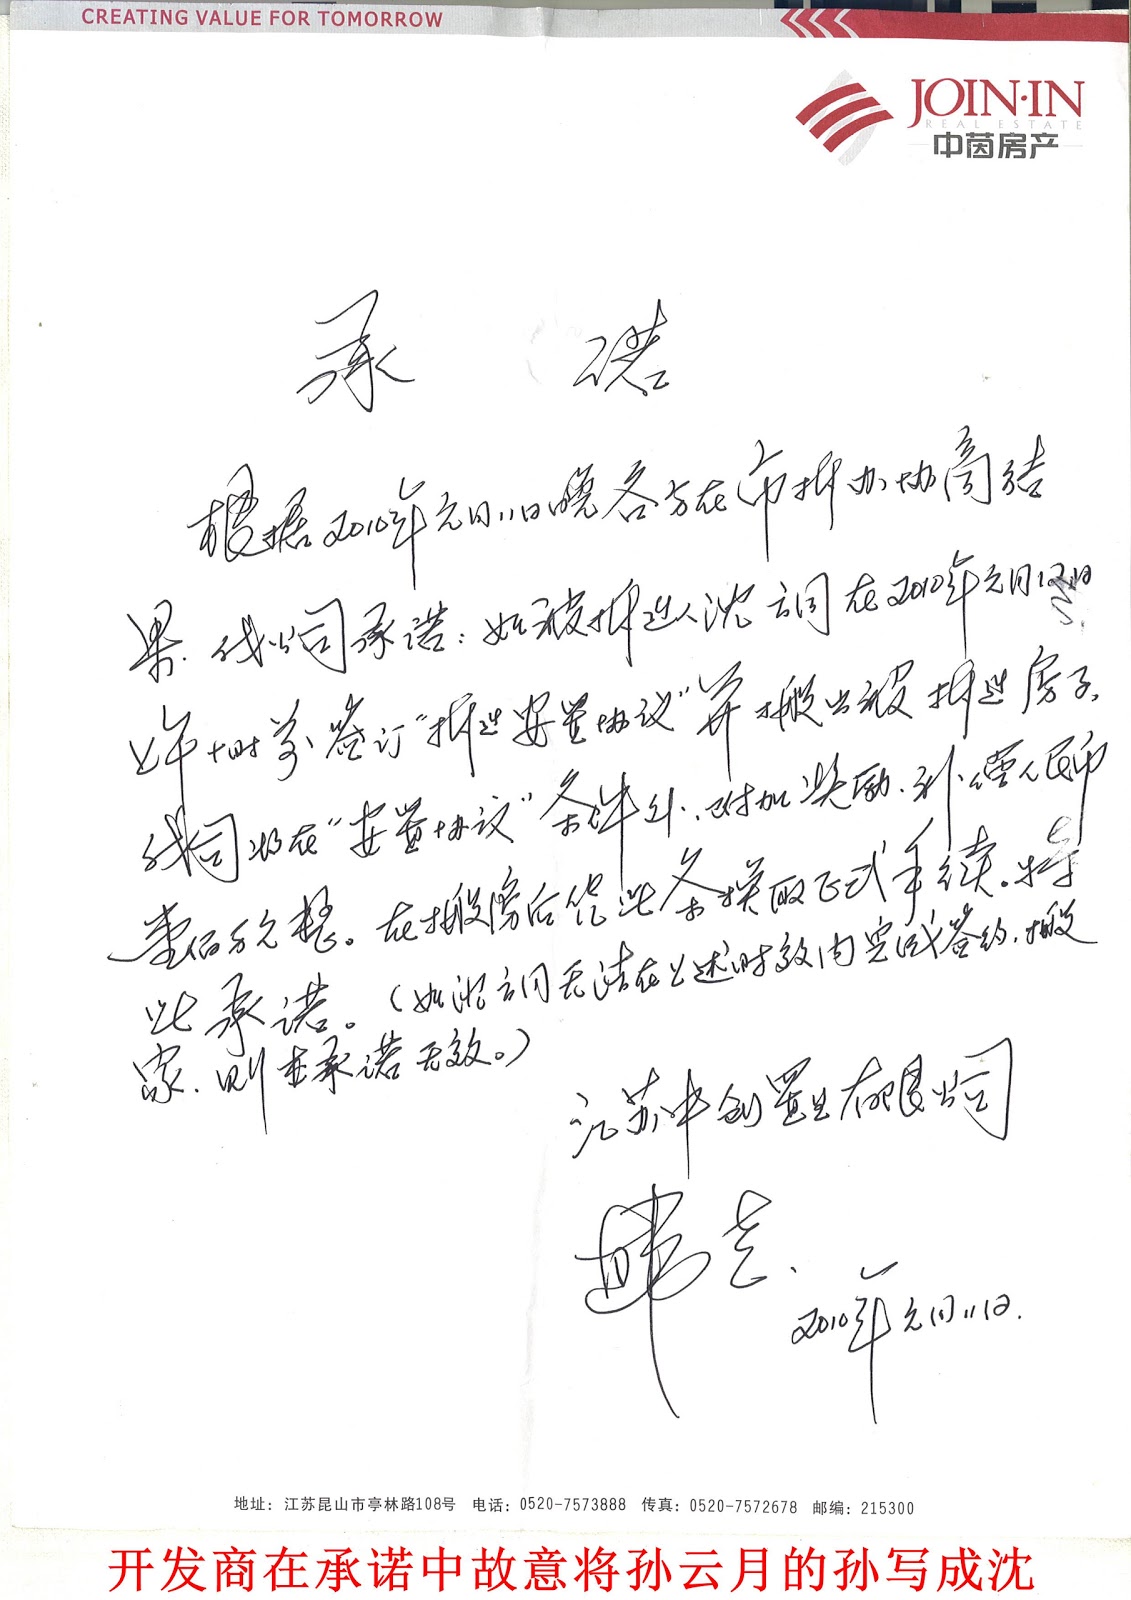 CREATING VALUE FOR TOMORROW
JOIN·IN
REAL ESTATE
中茵房产
承 诺
根据2010年元月11日晚各方在市拆办协商结
果.我公司承诺:如被拆迁人沈云同在2010年元月12日
上午十时前签订"拆迁安置协议"并搬出被拆迁房子、
我司将在"安置协议"条件外、附加奖励、补偿人民币
壹佰万元整。在搬房后凭此条换取正式手续。特
此承诺。(如沈云同无法在上述时效内完成签约、搬
家、则本承诺无效。)
江苏中创置业有限公司
韩志.
2010年元月11日.
地址: 江苏昆山市亭林路108号 电话: 0520-7573888 传真: 0520-7572678 邮编: 215300
开发商在承诺中故意将孙云月的孙写成沈